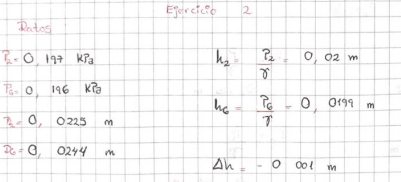 Ejercicio 2
Datos
P₂= 0, 197 kPa
P₆= 0, 196 kPa
D₂= 0, 0225 m
D₆= 0, 0244 m
h₂ = P₂/γ = 0, 02 m
h₆ = P₆/γ = 0, 0199 m
Δh = - 0 001 m